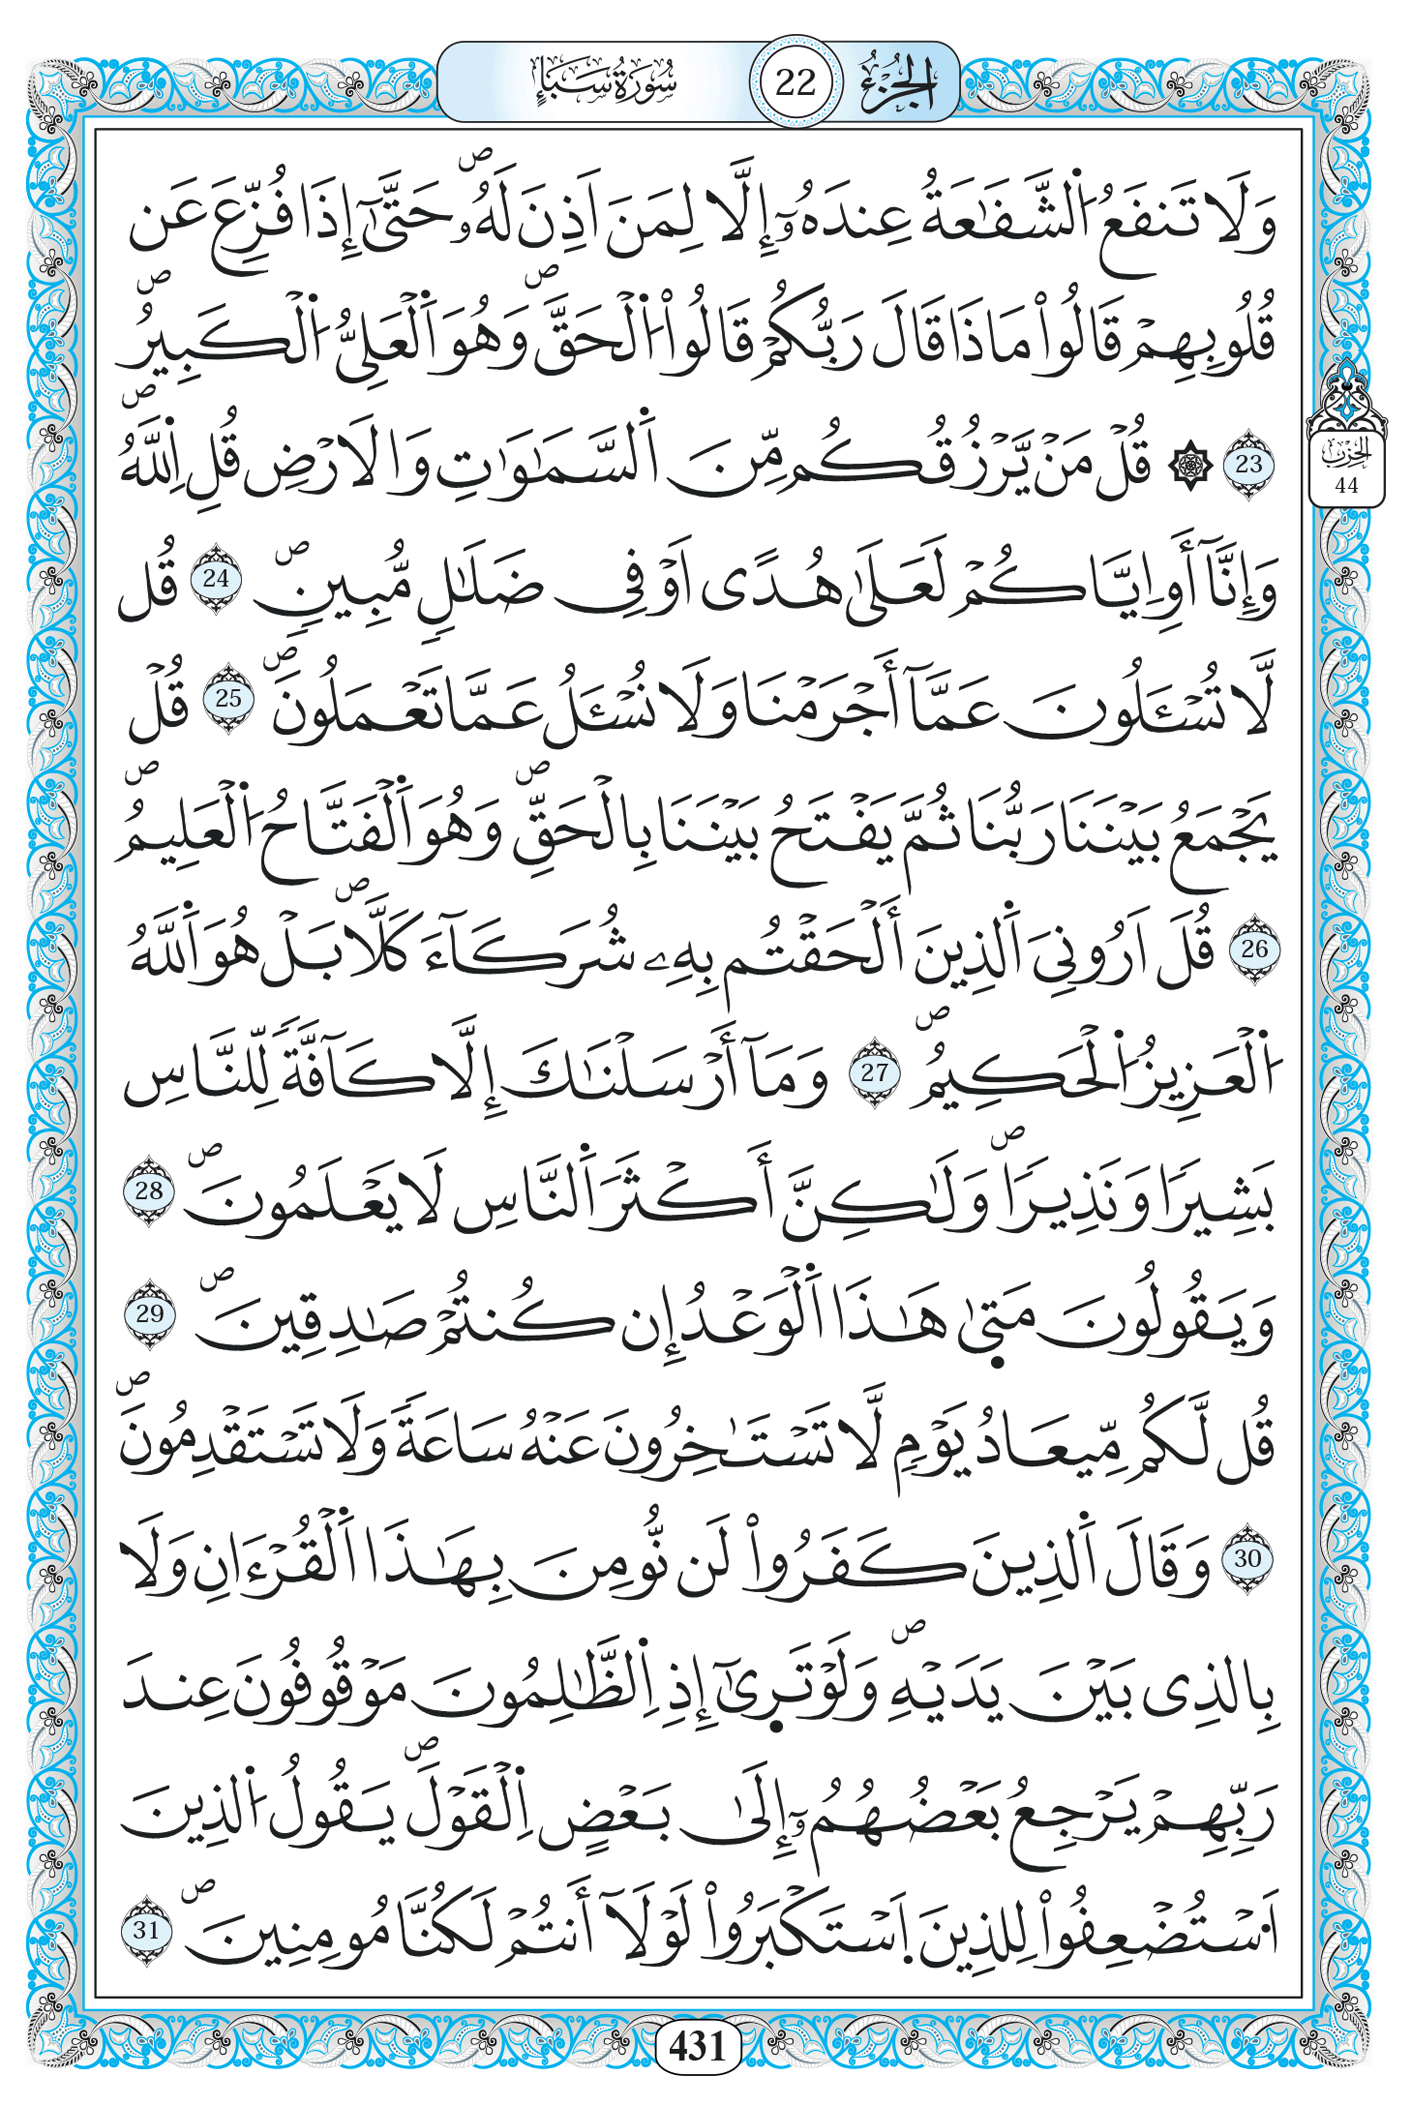 الجُزْءُ 22 سُورَةُ سَبَإٍ
وَلَا تَنفَعُ اُ۬لشَّفَٰعَةُ عِندَهُۥٓ إِلَّا لِمَنَ اَذِنَ لَهُۥۖ حَتَّىٰٓ إِذَا فُزِّعَ عَن
قُلُوبِهِمْ قَالُواْ مَاذَا قَالَ رَبُّكُمْ قَالُواْ اُ۬لْحَقَّۖ وَهُوَ اَ۬لْعَلِيُّ اُ۬لْكَبِيرُۖ
23 ۞ قُلْ مَنْ يَّرْزُقُكُم مِّنَ اَ۬لسَّمَٰوَٰتِ وَالَارْضِ قُلِ اِ۬للَّهُۖ
وَإِنَّآ أَوِ اِيَّاكُمْ لَعَلَىٰ هُدًى اَوْ فِى ضَلَٰلٖ مُّبِينٖۖ 24 قُل
لَّا تُسْـَٔلُونَ عَمَّآ أَجْرَمْنَا وَلَا نُسْـَٔلُ عَمَّا تَعْمَلُونَۖ 25 قُلْ
يَجْمَعُ بَيْنَنَا رَبُّنَا ثُمَّ يَفْتَحُ بَيْنَنَا بِالْحَقِّۖ وَهُوَ اَ۬لْفَتَّاحُ اُ۬لْعَلِيمُۖ
26 قُلَ اَرُونِىَ اَ۬لذِينَ أَلْحَقْتُم بِهِۦ شُرَكَآءَ كَلَّاۖ بَلْ هُوَ اَ۬للَّهُ
اُ۬لْعَزِيزُ اُ۬لْحَكِيمُۖ 27 وَمَآ أَرْسَلْنَٰكَ إِلَّا كَآفَّةٗ لِّلنَّاسِ
بَشِيرٗا وَنَذِيرٗاۖ وَلَٰكِنَّ أَكْثَرَ اَ۬لنَّاسِ لَا يَعْلَمُونَۖ 28
وَيَقُولُونَ مَتىٰ هَٰذَا اَ۬لْوَعْدُ إِن كُنتُمْ صَٰدِقِينَۖ 29
قُل لَّكُم مِّيعَادُ يَوْمٖ لَّا تَسْتَٰخِرُونَ عَنْهُ سَاعَةٗ وَلَا تَسْتَقْدِمُونَۖ
30 وَقَالَ اَ۬لذِينَ كَفَرُواْ لَن نُّومِنَ بِهَٰذَا اَ۬لْقُرْءَانِ وَلَا
بِالذِى بَيْنَ يَدَيْهِۖ وَلَوْ تَرِىٰٓ إِذِ اِ۬لظَّٰلِمُونَ مَوْقُوفُونَ عِندَ
رَبِّهِمْ يَرْجِعُ بَعْضُهُمُۥٓ إِلَىٰ بَعْضٍ اِ۬لْقَوْلَۖ يَقُولُ اُ۬لذِينَ
اَ۟سْتُضْعِفُواْ لِلذِينَ اَ۪سْتَكْبَرُواْ لَوْلَآ أَنتُمْ لَكُنَّا مُومِنِينَۖ 31
الحِزْب
44
431